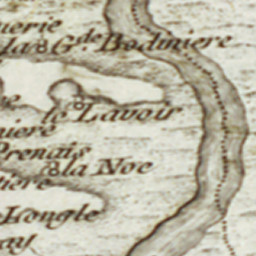 uerie
la G.de Bodiniere
le Lavoir
niere
Prenais
la Noe
tiere
Longle
ay